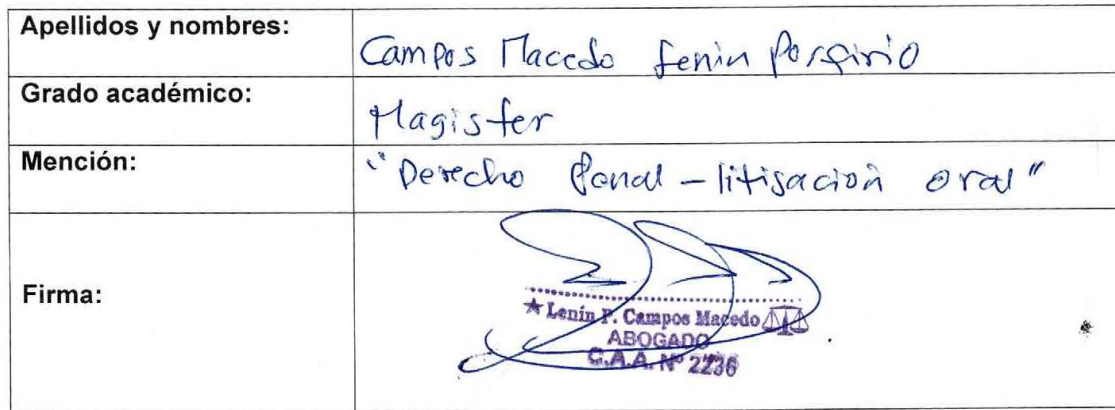 Apellidos y nombres:
Campos Macedo Lenin Porfirio
Grado académico:
Magister
Mención:
"Derecho Penal - litigación oral"
Firma:
Lenin P. Campos Macedo
ABOGADO
C.A.A. Nº 2236